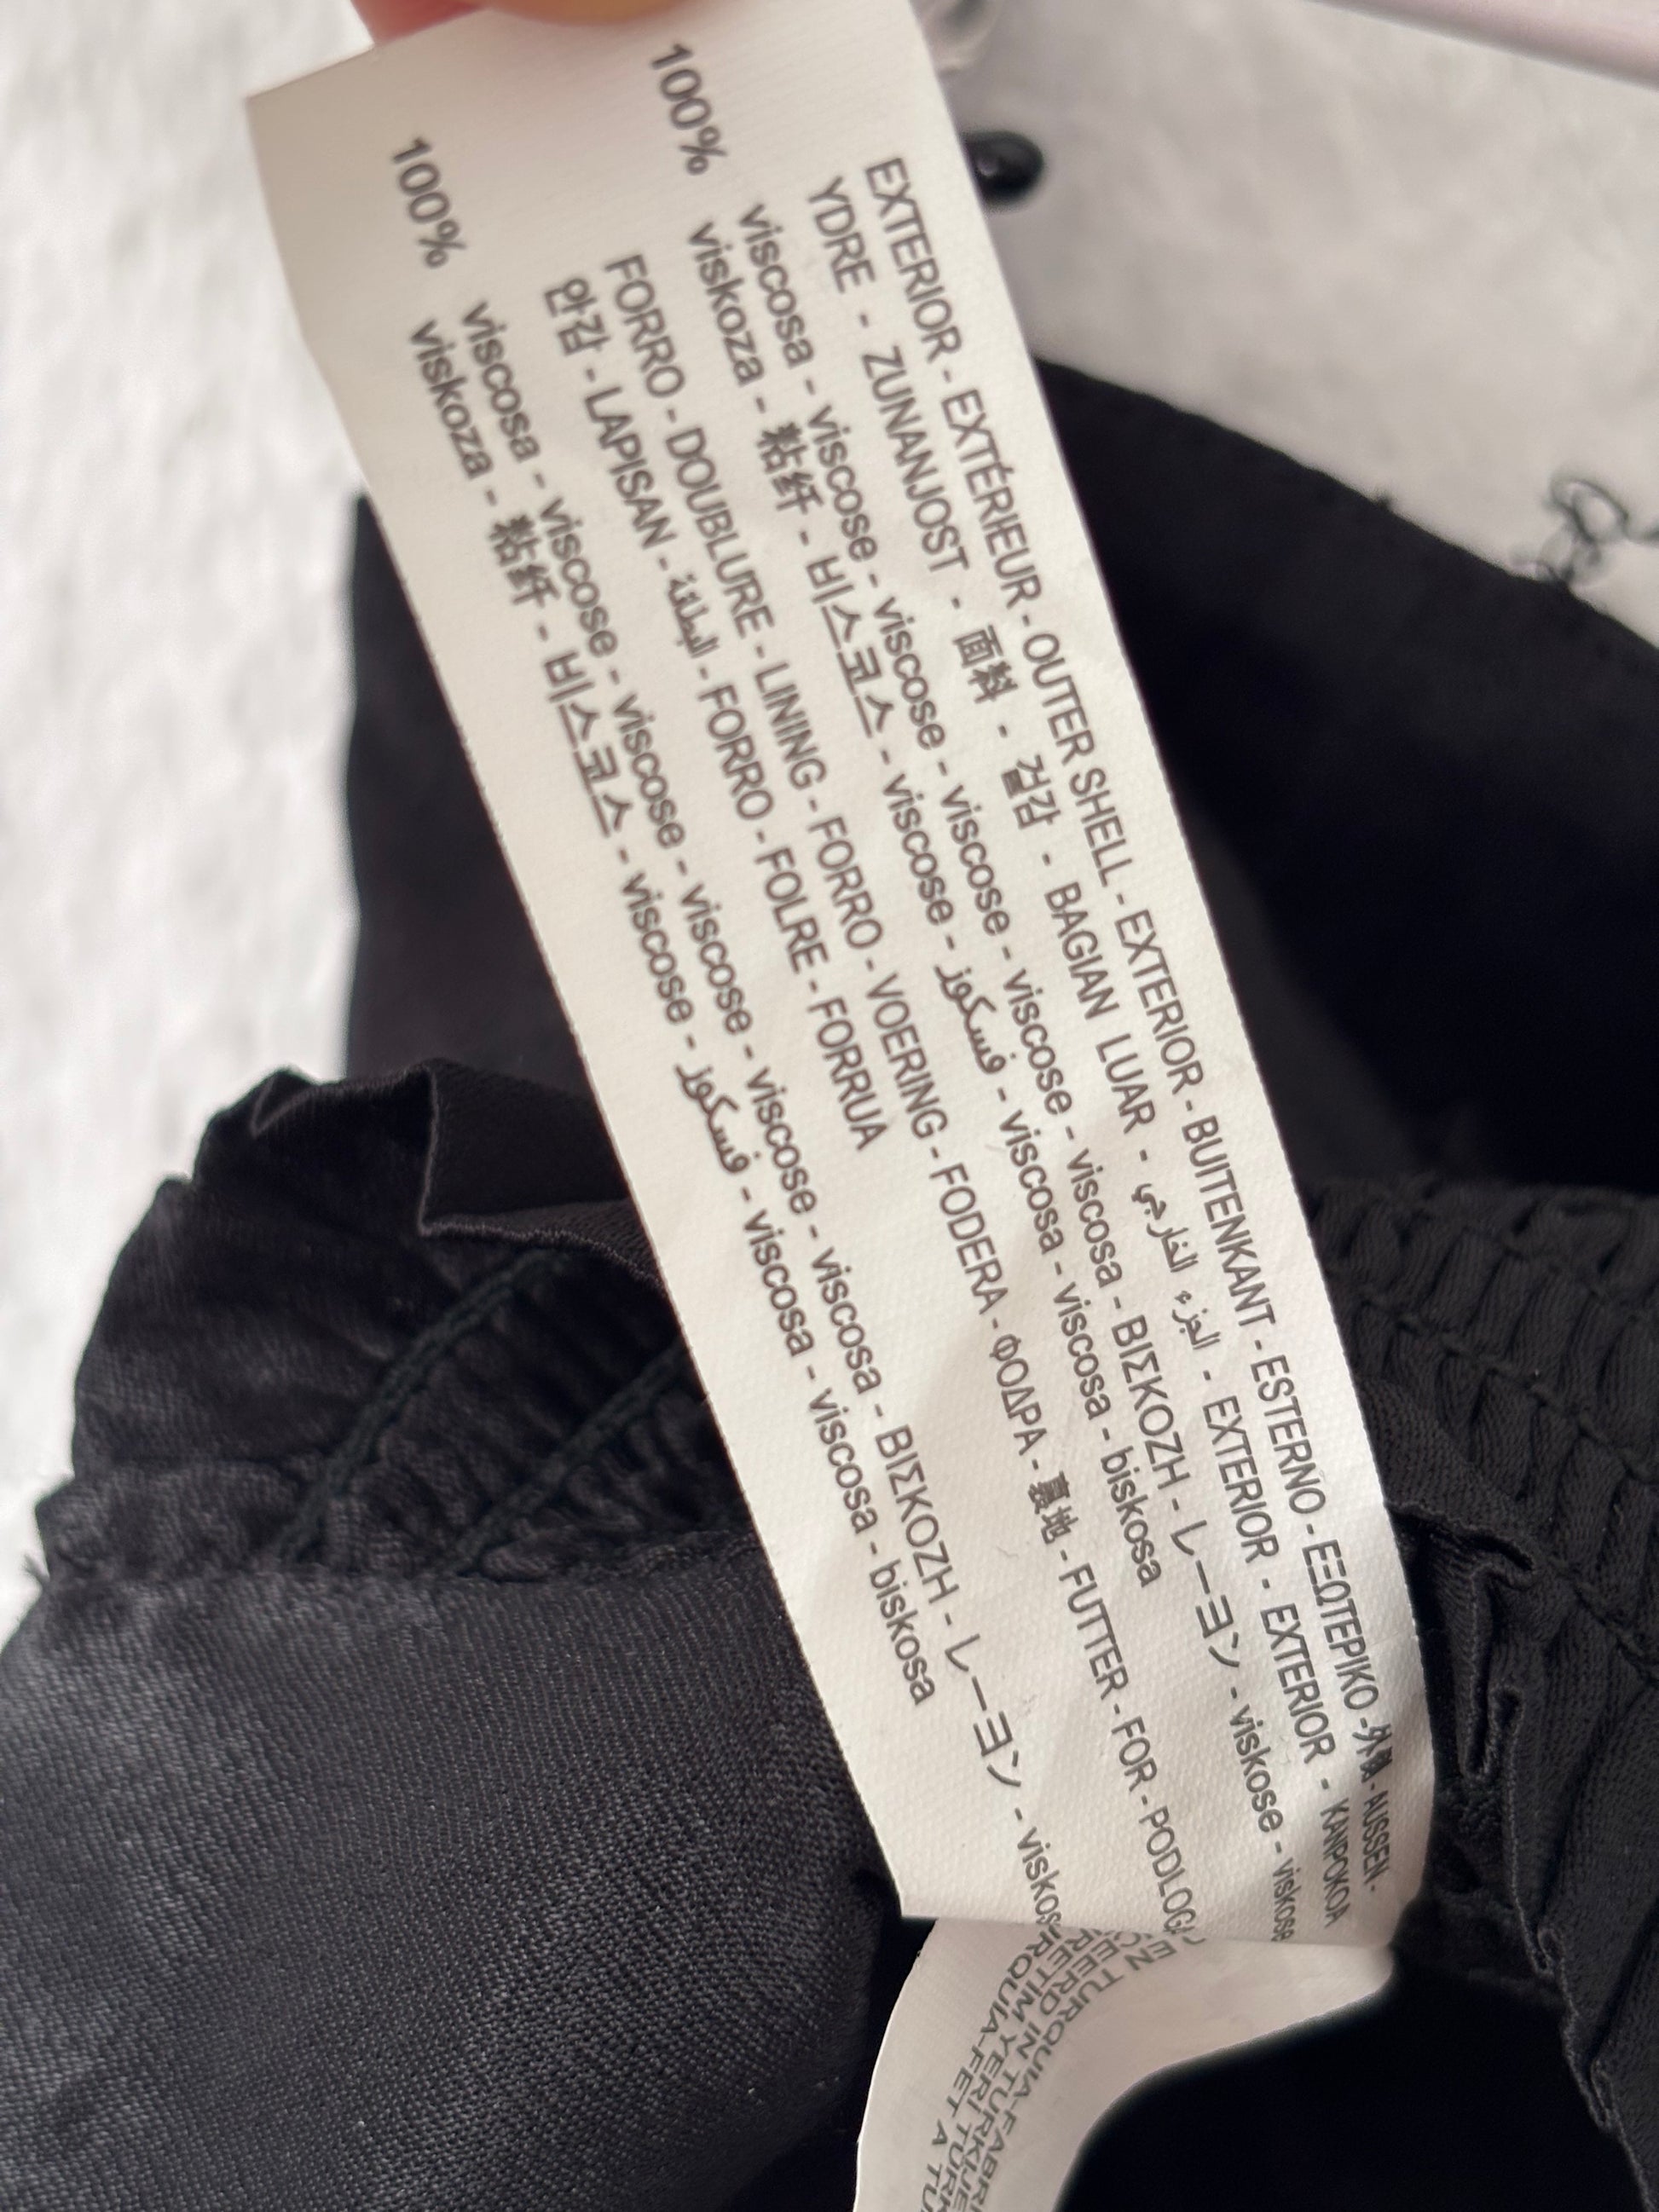 EXTERIOR - EXTÉRIEUR - OUTER SHELL - EXTERIOR - BUITENKANT - ESTERNO - ΕΞΩΤΕΡΙΚΟ - AUSSEN -
YDRE - ZUNANJOST - 面料 - 겉감 - BAGIAN LUAR - الجزء الخارجي - EXTERIOR - EXTERIOR - KANPOKOA
100% viscosa - viscose - viscose - viscose - viscose - viscosa - ΒΙΣΚΟΖΗ - レーヨン - viskose - viskose
viskoza - 粘纤 - 비스코스 - viscose - فسكوز - viscosa - viscosa - biskosa
FORRO - DOUBLURE - LINING - FORRO - VOERING - FODERA - ΦΟΔΡΑ - 裏地 - FUTTER - FOR - PODLOGA
안감 - LAPISAN - البطانة - FORRO - FOLRE - FORRUA
100% viscosa - viscose - viscose - viscose - viscose - viscosa - ΒΙΣΚΟΖΗ - レーヨン -
viskoza - 粘纤 - 비스코스 - viscose - فسكوز - viscosa - viscosa - biskosa
EN TURQUIA-FABRI
IN TURKIJE
YERİ TÜRK
FET A TU